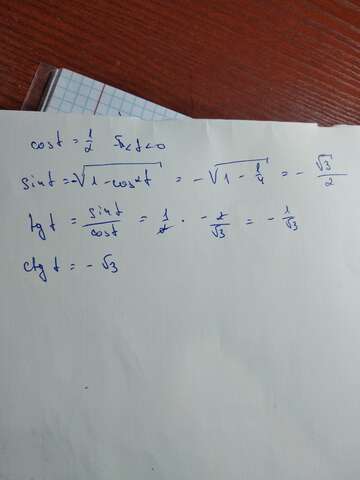 cos t = 1/2 -π/2 < t < 0
sin t = -√(1 - cos² t) = -√(1 - 1/4) = - √3/2
tg t = sin t/cos t = 1/2 · - 2/√3 = - 1/√3
ctg t = - √3